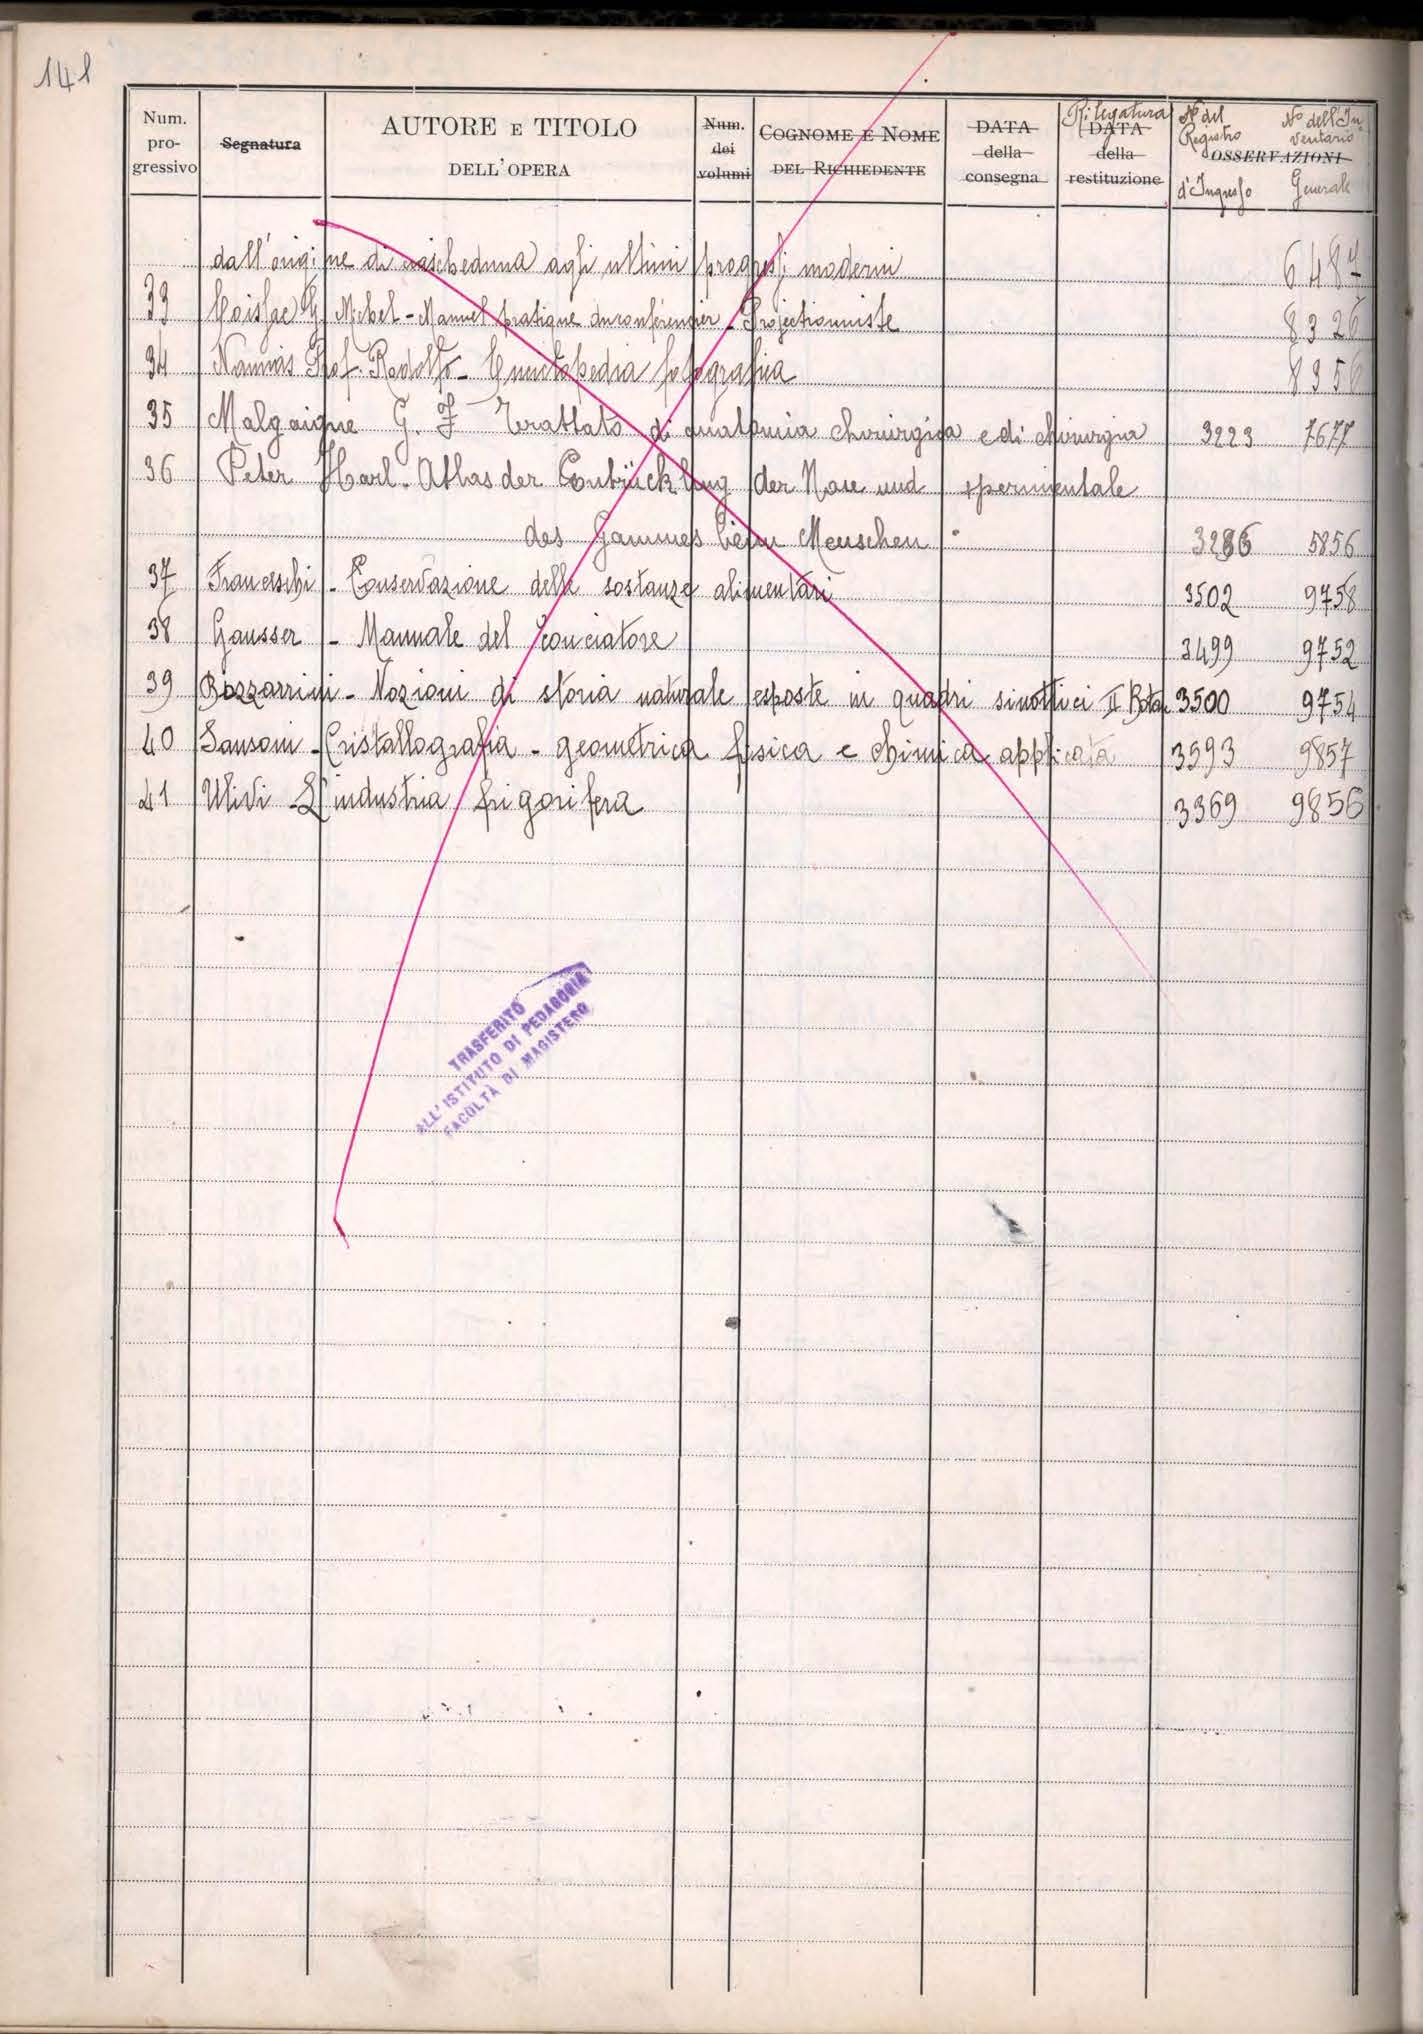 141
Num. progressivo Segnatura AUTORE E TITOLO DELL'OPERA Num. dei volumi COGNOME E NOME DEL RICHIEDENTE DATA della consegna Rilegatura DATA della restituzione No del Registro d'Ingresso OSSERVAZIONI No dell'Inventario Generale
dall'origine di ciascheduna agli ultimi progressi moderni 648
33 Michel - Manuel pratique du conférencier - Projectionniste 8326
34 Namias Prof. Rodolfo - Enciclopedia fotografica 8356
35 Malgaigne G. F Trattato di anatomia chirurgica e di chirurgia 3223 7677
36 Peter Karl. Atlas der Entwückelung der Nase und sperimentale
des Gaumes beim Menschen 3286 5856
37 Franceschi - Conservazione delle sostanze alimentari 3502 9758
38 Gausser - Manuale del Conciatore 3499 9752
39 Bazzarrini - Nozioni di storia naturale esposte in quadri sinottici II Bota 3500 9754
40 Sansoni - Cristallografia - geometrica fisica e chimica applicata 3593 9857
41 Ulivi L'industria frigorifera 3369 9856
TRASFERITO
ALL'ISTITUTO DI PEDAGOGIA
FACOLTÀ DI MAGISTERO